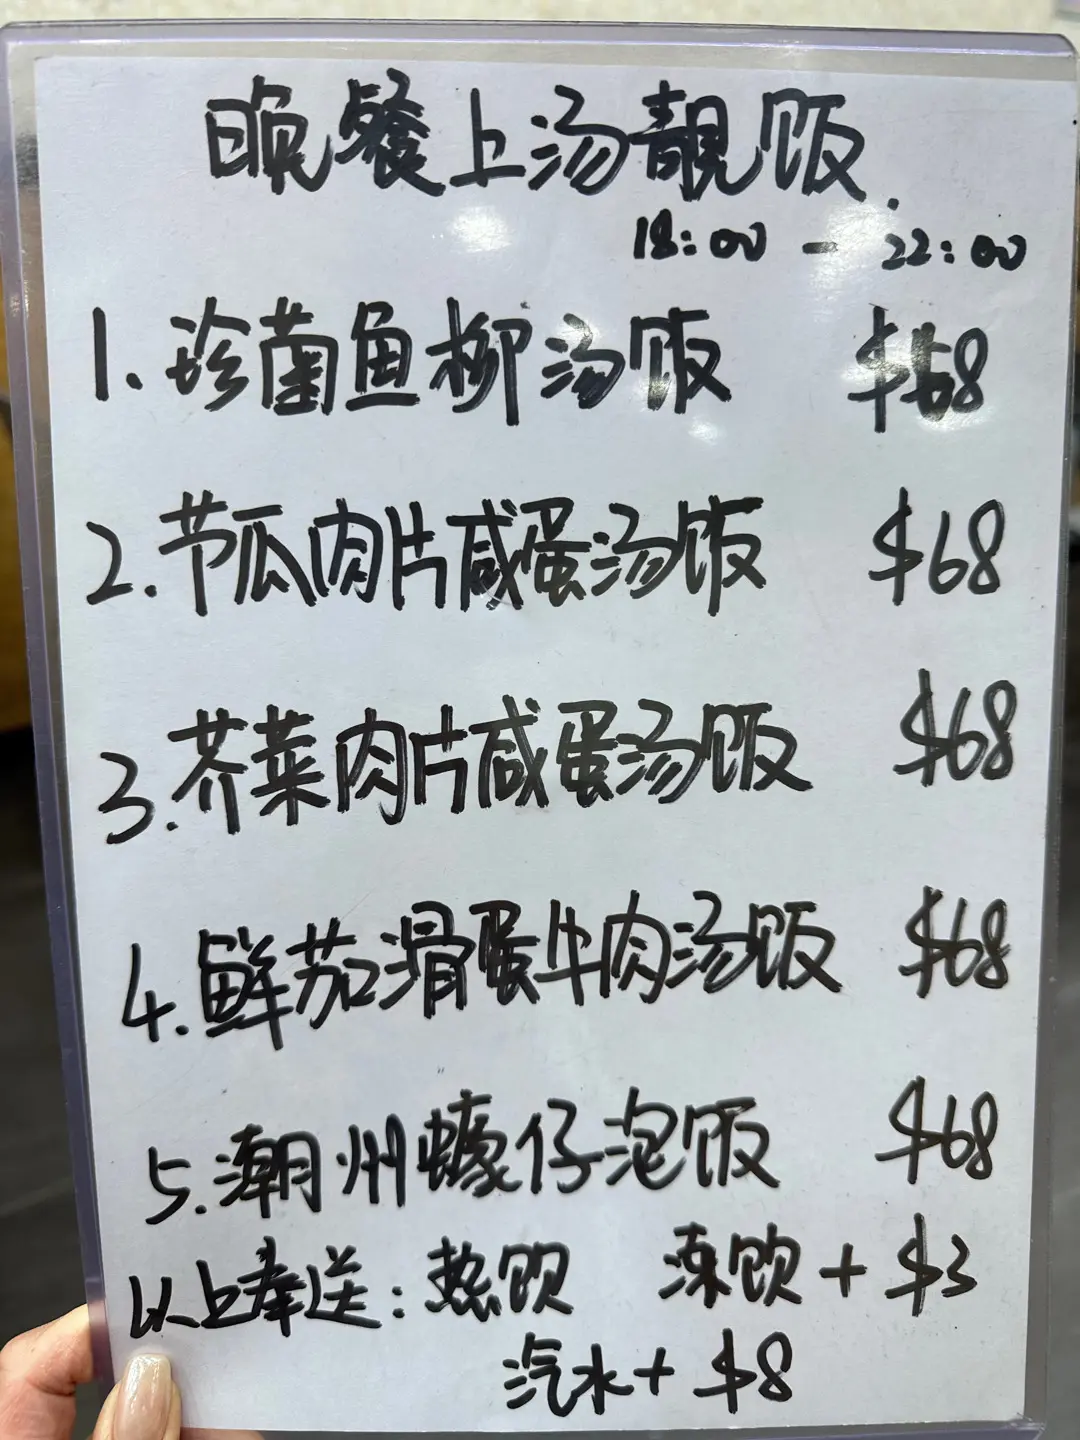 晚餐上汤靓饭.
18:00 - 22:00
1.珍菌鱼柳汤饭 $68
2.节瓜肉片咸蛋汤饭 $68
3.芥菜肉片咸蛋汤饭 $68
4.鲜茄滑蛋牛肉汤饭 $68
5.潮州蠔仔泡饭 $68
以上奉送:热饮 冻饮+$3
汽水+$8